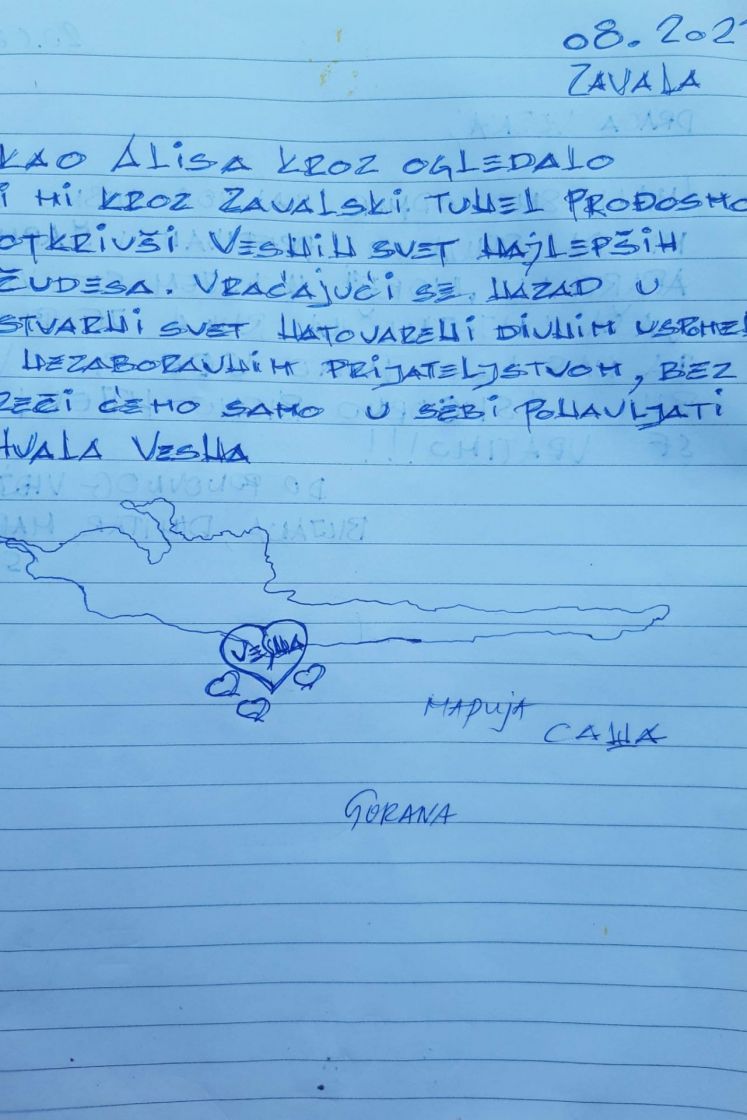 08. 202
ZAVALA
KAO ALISA KROZ OGLEDALO
I MI KROZ ZAVALSKI TUNEL PROĐOSMO
OTKRIVŠI VESNIN SVET NAJLEPŠIH
ČUDESA. VRAĆAJUĆI SE NAZAD U
STVARNI SVET NATOVARENI DIVNIM USPOMEN
NEZABORAVNIM PRIJATELJSTVOM, BEZ
REČI ĆEMO SAMO U SEBI PONAVLJATI
HVALA VESNA
VESNA
Марија
САША
GORANA